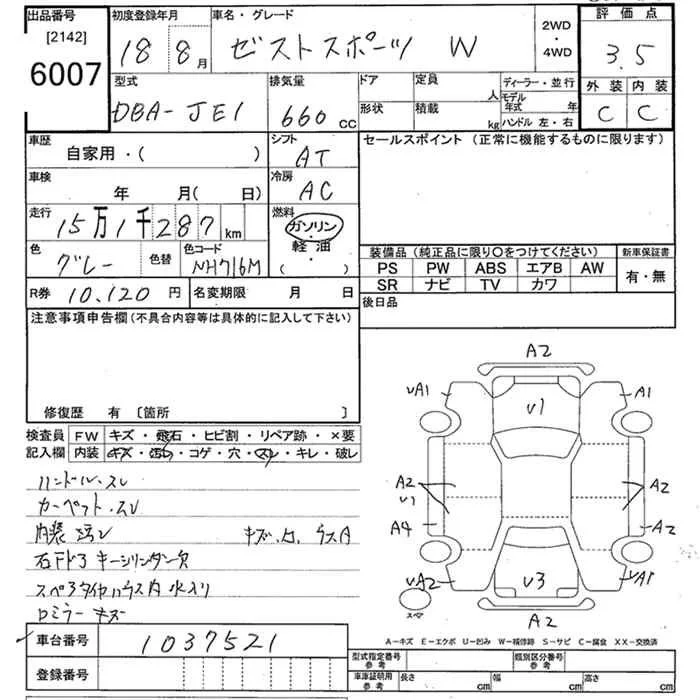 出品番号 [2142] 6007
初度登録年月 18 8月
車名・グレード ゼストスポーツ W
2WD・4WD
評価点 3.5
外装 C 内装 C
型式 DBA-JE1
排気量 660 cc
ドア 形状
定員 人 積載 kg
ディーラー・並行
モデル年式 年
ハンドル 左・右
車歴 自家用・( )
シフト AT
セールスポイント (正常に機能するものに限ります)
車検 年 月( 日)
冷房 AC
走行 15万1千287 km
燃料 ガソリン・軽油・( )
色 グレー 色替
色コード NH716M
装備品 (純正品に限り〇をつけてください)
新車保証書 有・無
PS PW ABS エアB AW
SR ナビ TV カワ
R券 10,120 円
名変期限 月 日
後日品
注意事項申告欄 (不具合内容等は具体的に記入して下さい)
修復歴 有 〔箇所 〕
検査員記入欄
FW キズ・飛石・ヒビ割・リペア跡・×要
内装 キズ・汚れ・コゲ・穴・スレ・キレ・破レ
ハンドル.スレ
カーペット.スレ
内装汚レ
右Fドア キーシリンダー欠
スペアタイヤハウス内 水入り
ロミラー キズ
A2
uA1 A1
U1
A2 U1 A2
A4 A2
uA2 U3 uA1
スペア
A2
A-キズ E-エクボ U-凹み W-補修跡 S-サビ C-腐食 XX-交換済
車台番号 1037521
登録番号
型式指定番号 参考
類別区分番号 参考
車庫証明用 参考 長さ cm 幅 cm 高さ cm